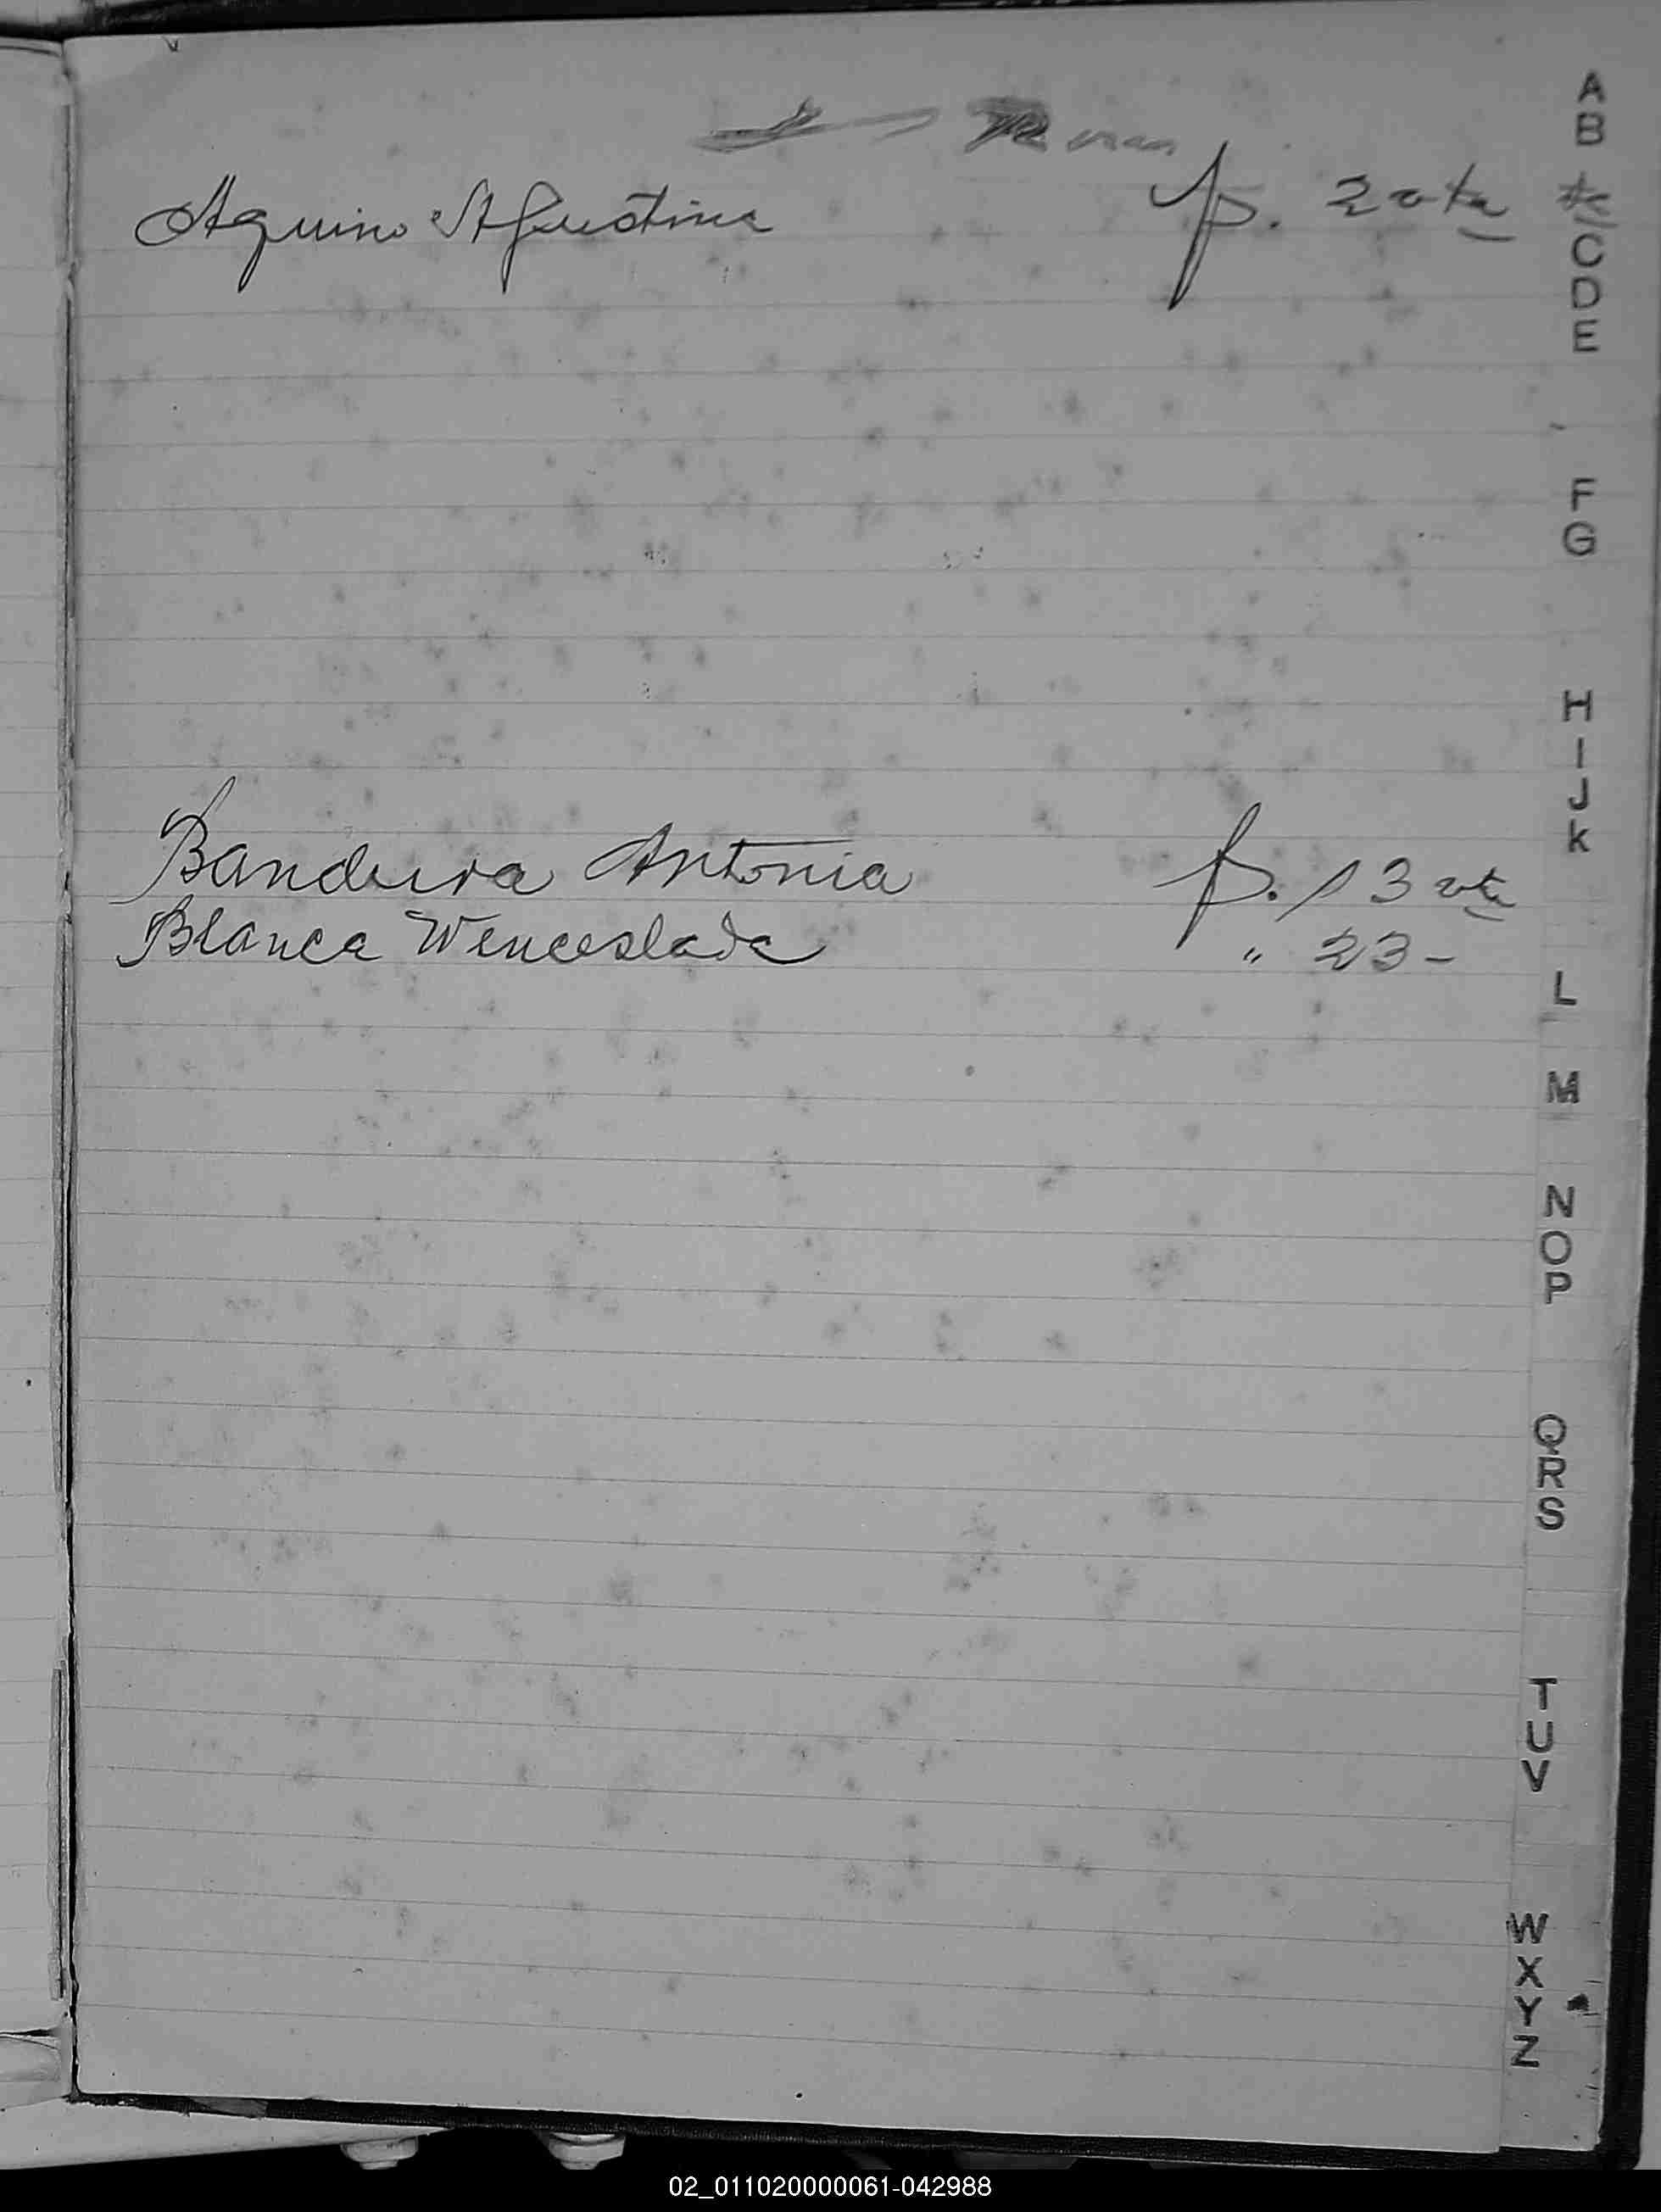 Aquino Agustina f. 2 vta
Bandeira Antonia f. 13 vta
Blanca Wenceslada " 23 -
A
B
C
D
E
F
G
H
I
J
K
L
M
N
O
P
Q
R
S
T
U
V
W
X
Y
Z
02_011020000061-042988